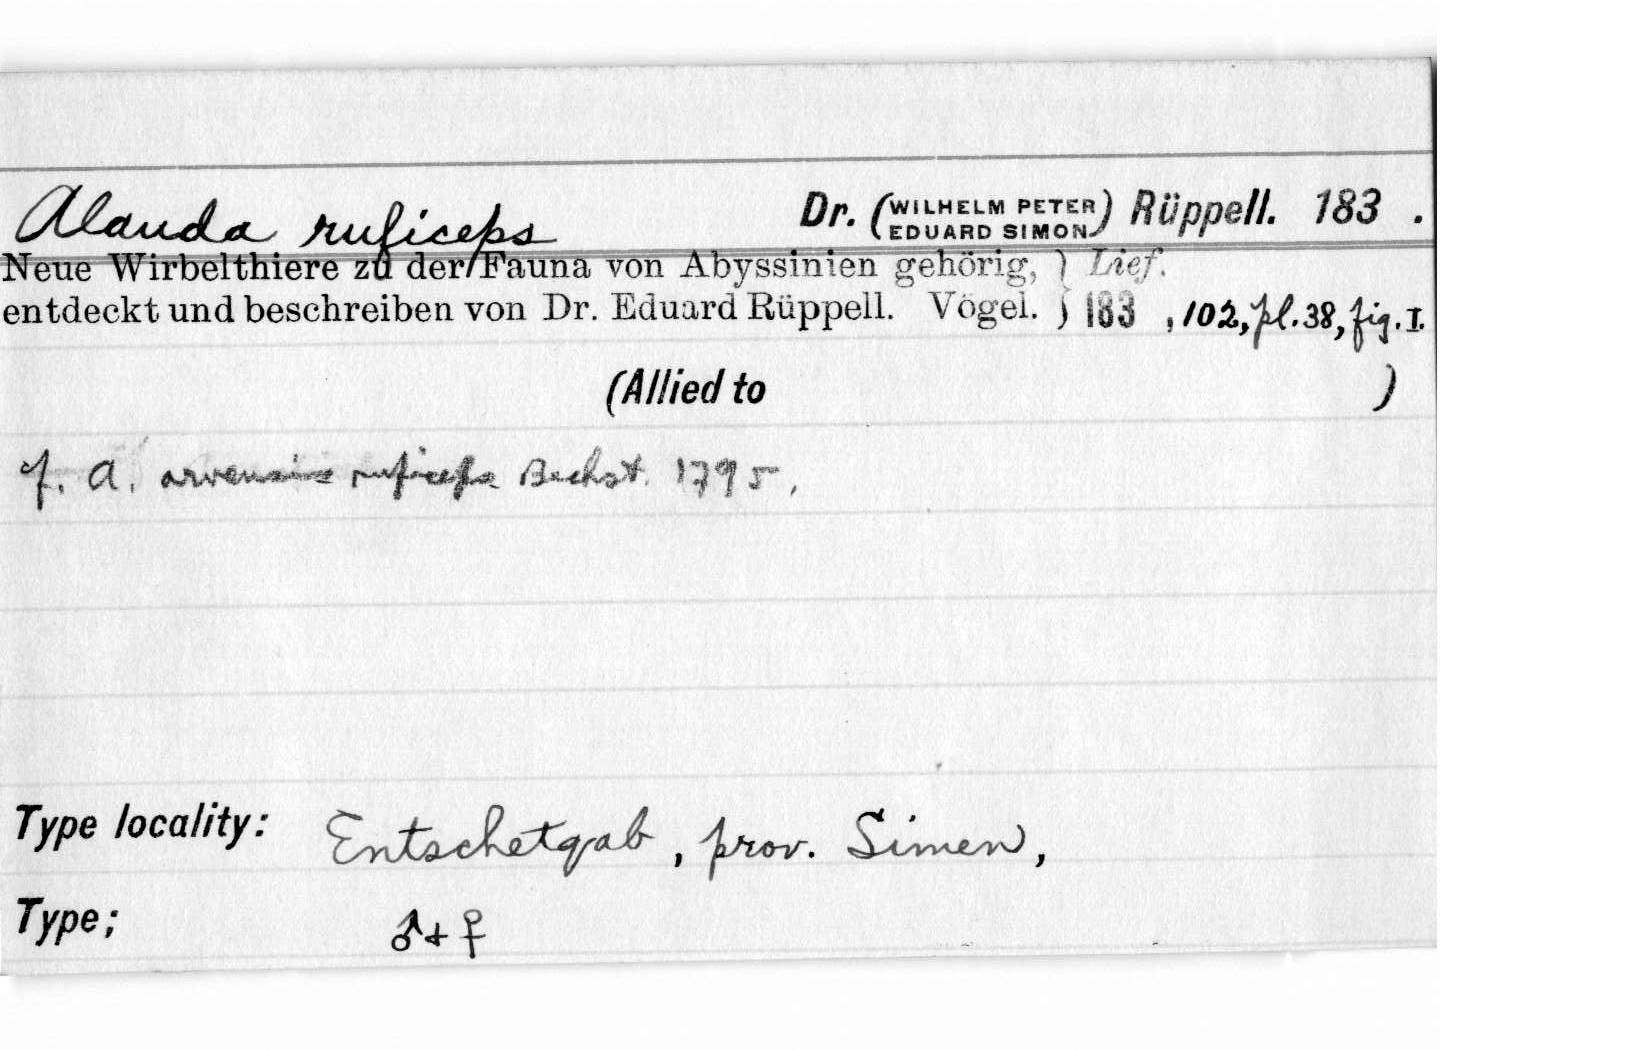 Alauda ruficeps Dr. (WILHELM PETER EDUARD SIMON) Rüppell. 183 .
Neue Wirbelthiere zu der Fauna von Abyssinien gehörig, } Lief.
entdeckt und beschreiben von Dr. Eduard Rüppell. Vögel. } 183 , 102, pl. 38, fig. I.
(Allied to )
cf. A. arvensis ruficeps Bechst. 1795,
Type locality: Entschetqab, prov. Simen,
Type; ♂ + ♀